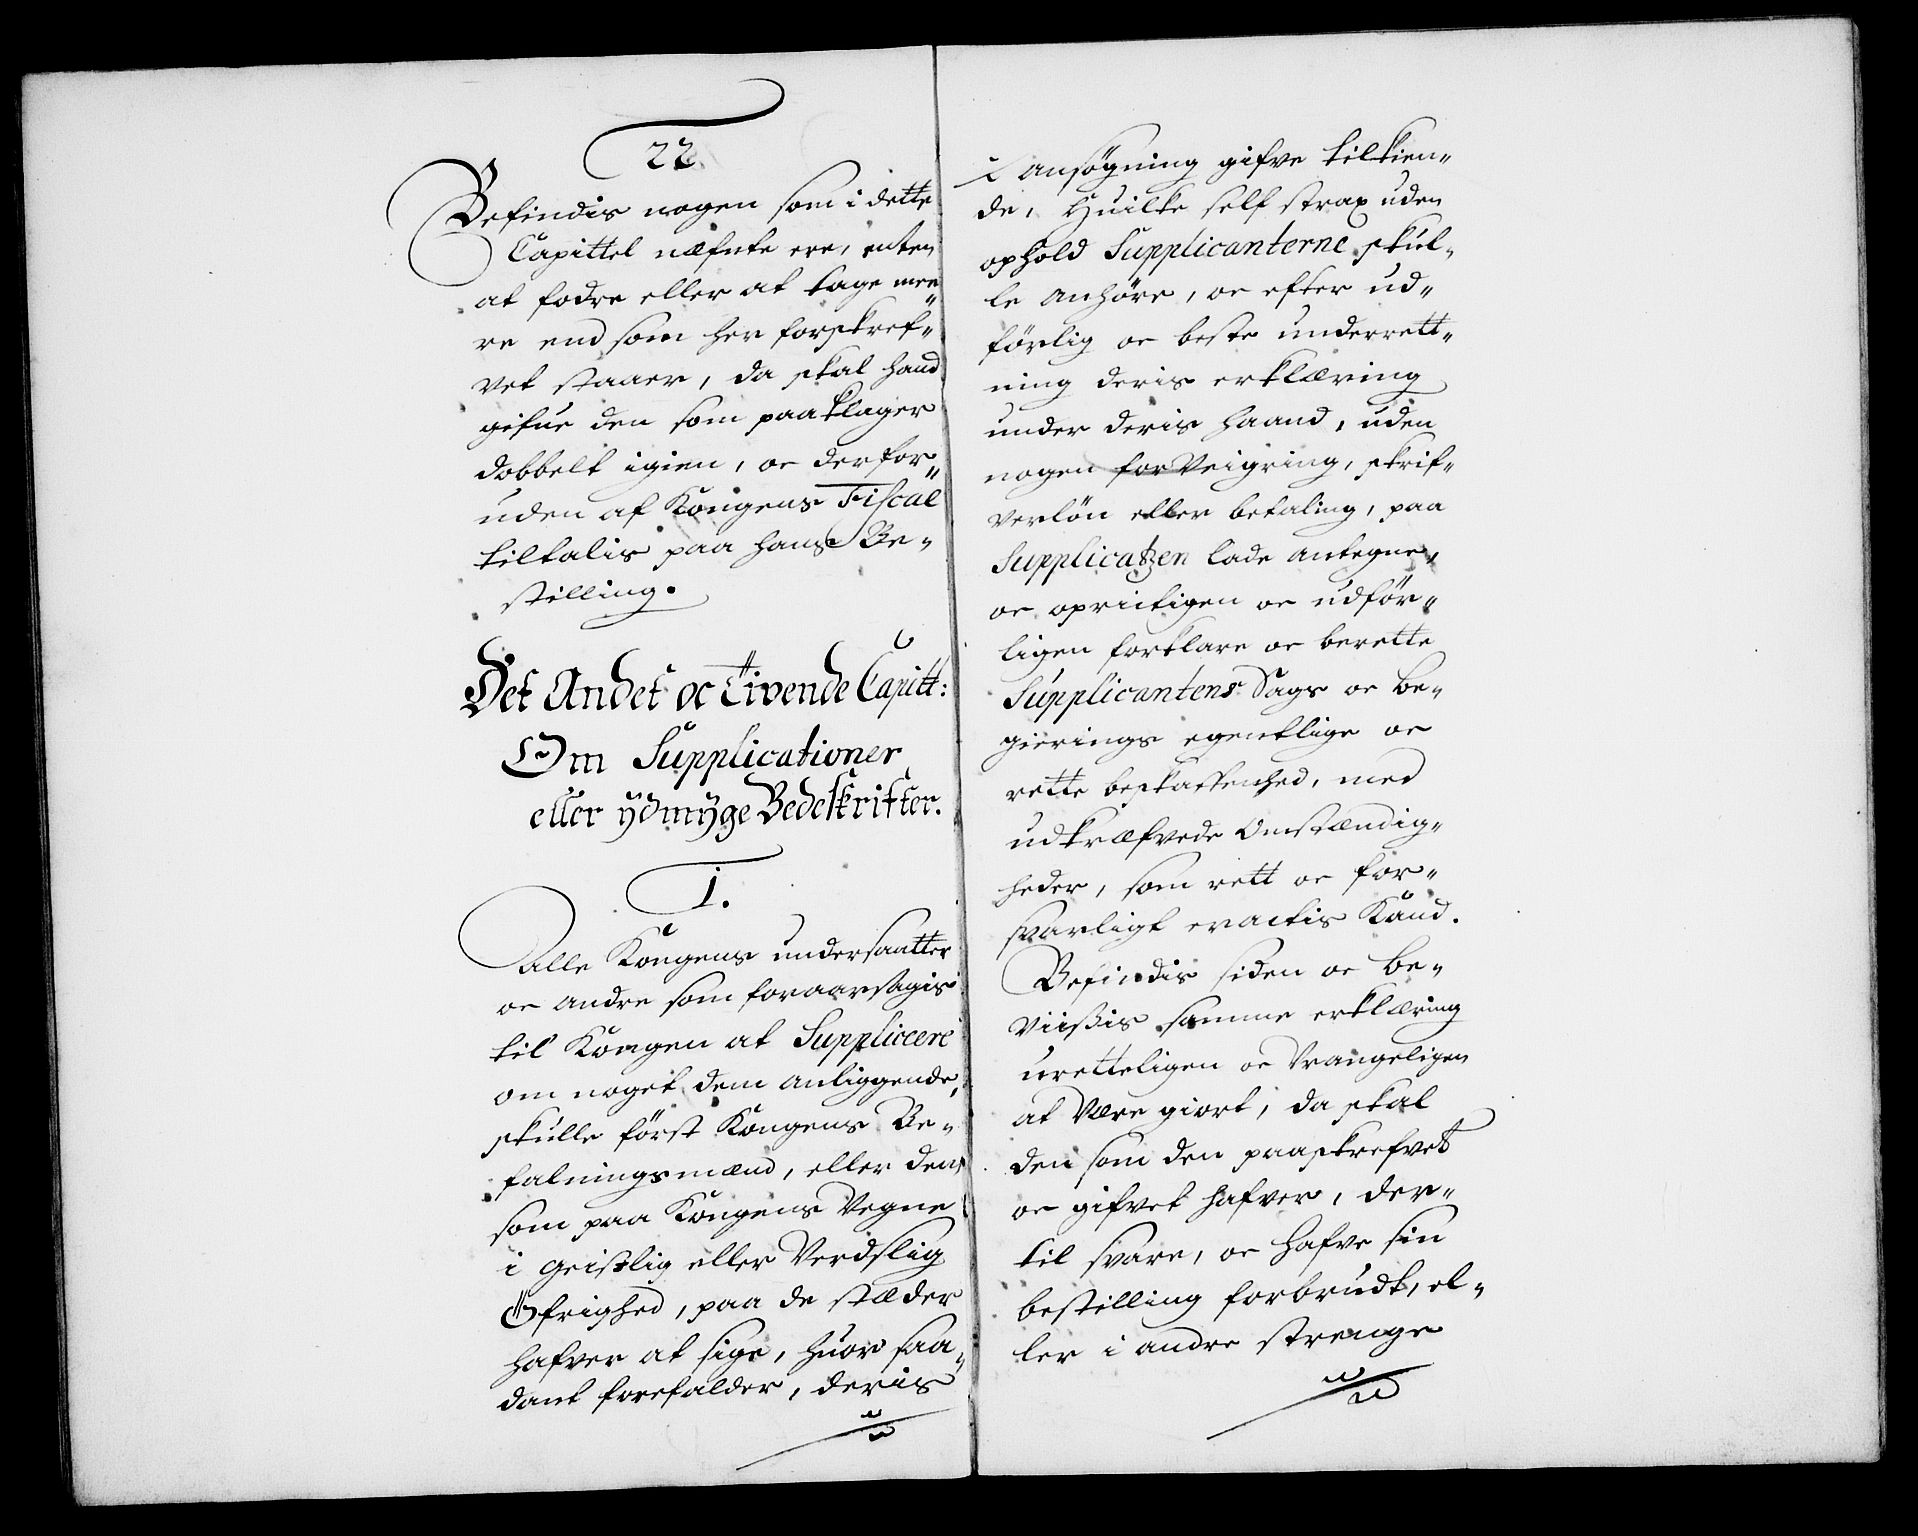 22.
Befindis nogen som i dette
Capittel næfnte ere, enten
at fodre eller at tage mee„
re end som her forskref„
vet staaer, da skal hand
gifue den som paaklager
dobbelt igien, oc derfor„
uden af Kongens Fiscal
tiltalis paa hans Be„
stilling.
Det Andet oc Tivende Capitt:
Om Supplicationer
eller ydmyge Bedeskrifter.
1.
Alle Kongens undersaatter
oc andre som foraarsagis
til Kongen at Supplicere
om noget dem anliggende,
skulle först Kongens Be„
falningsmænd, eller den
som paa Kongens Vegne
i Geistlig eller Verdslig
Öfrighed, paa de stæder
hafver at sige, huor saa„
dant forefalder, deris
ansögning gifve tilkien„
de, Huilke self strax uden
ophold Supplicanterne skul„
le anhöre, oc efter ud„
förlig oc beste underrett„
ning deris erklæring
under deris haand, uden
nogen forVeigring, skrif„
verlön eller betaling, paa
Supplicatzen lade antegne,
oc oprictigen oc udför„
ligen forklare oc berette
Supplicantens Sags oc be„
gierings egentlige oc
rette beskaffenhed, med
udkræfvede Omstændig„
heder, som rett oc for„
svarligt eractis Kand.
Befindis siden oc be„
Viißis samme erklæring
uretteligen oc Vrangeligen
at Være giort, da skal
den som den paaskrefvet
oc gifvet hafver, der„
til svare, oc hafve sin
bestilling forbrudt, el„
ler i andre strenge